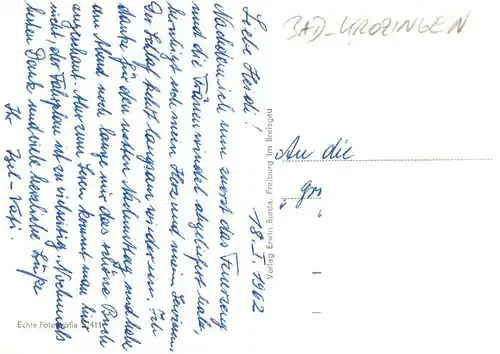 BAD-KROZINGEN
18. I. 1962
Liebe Heidi!
Nachdem ich nun zuerst das Feuerzeug
und die abgeliefert habe,
beruhigt sich mein Herz und mein Gewissen,
Der Schlaf kehrt langsam wieder ein. Ich
danke für den netten Nachmittag und habe
am Abend noch lange mir das schöne Buch
angeschaut. Aber zum Lesen kommt man hier
nicht, der Fahrplan ist zu vielseitig. Nochmals
lieben Dank und viele herzliche Grüße
Ihr
An die
Verlag Erwin Burda, Freiburg im Breisgau
Echte Fotografie